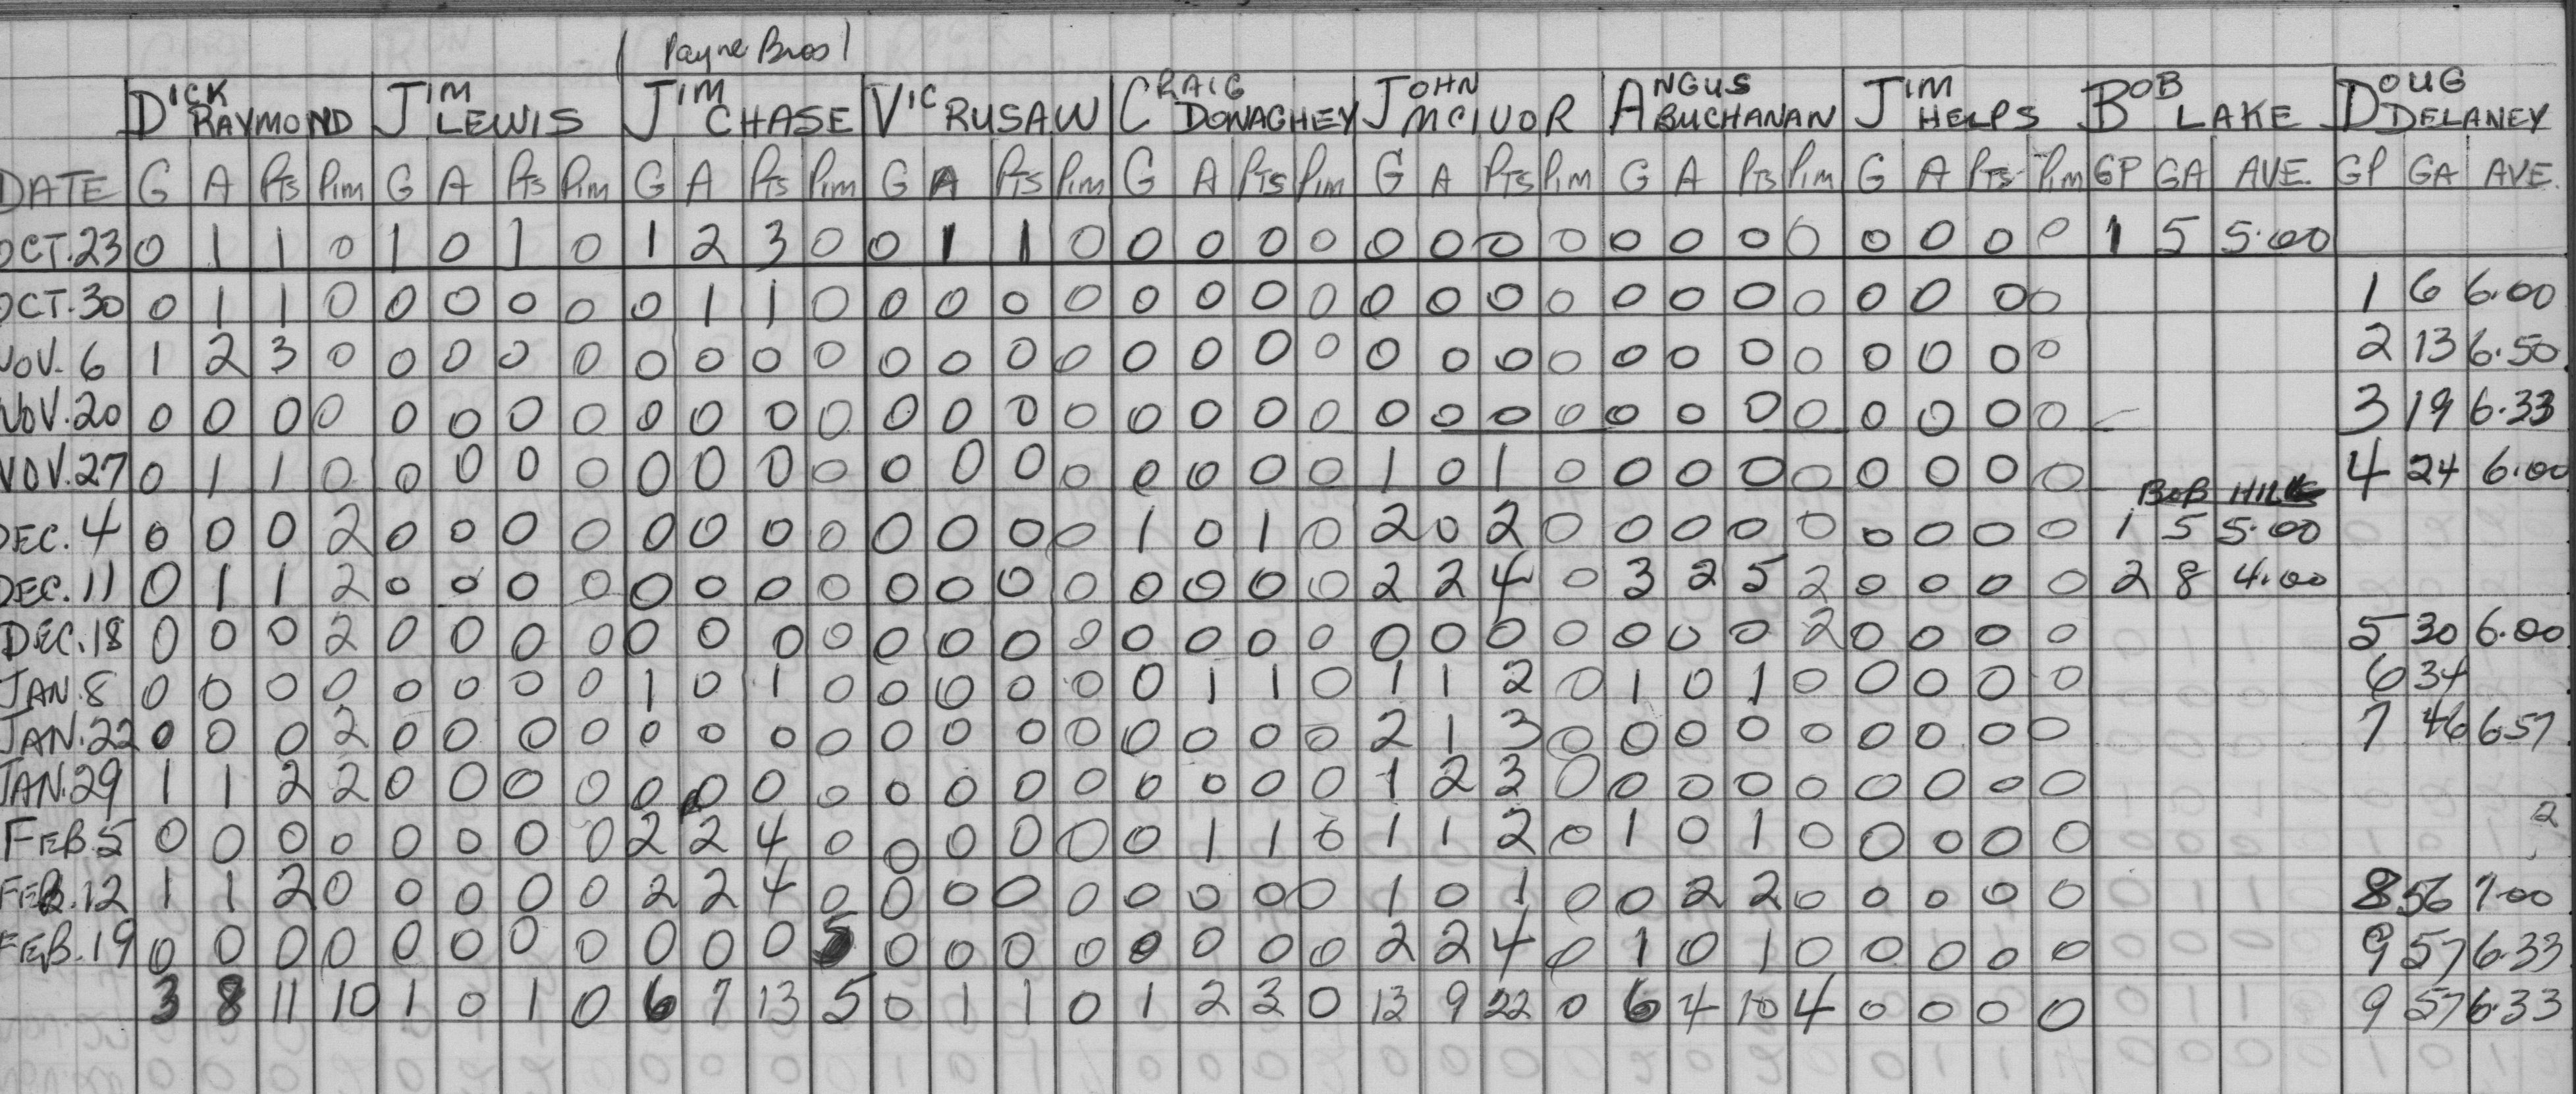 Payne Bros
DICK RAYMOND JIM LEWIS JIM CHASE VIC RUSAW CRAIG DONAGHEY JOHN MCIVOR ANGUS BUCHANAN JIM HELPS BOB LAKE DOUG DELANEY
DATE G A Pts Pim G A Pts Pim G A Pts Pim G A Pts Pim G A Pts Pim G A Pts Pim G A Pts Pim G A Pts Pim GP GA AVE. GP GA AVE.
OCT.23 0 1 1 0 1 0 1 0 1 2 3 0 0 1 1 0 0 0 0 0 0 0 0 0 0 0 0 0 0 0 0 0 1 5 5.00
OCT.30 0 1 1 0 0 0 0 0 0 1 1 0 0 0 0 0 0 0 0 0 0 0 0 0 0 0 0 0 0 0 0 0 1 6 6.00
NOV. 6 1 2 3 0 0 0 0 0 0 0 0 0 0 0 0 0 0 0 0 0 0 0 0 0 0 0 0 0 0 0 0 0 2 13 6.50
NOV.20 0 0 0 0 0 0 0 0 0 0 0 0 0 0 0 0 0 0 0 0 0 0 0 0 0 0 0 0 0 0 0 0 3 19 6.33
NOV.27 0 1 1 0 0 0 0 0 0 0 0 0 0 0 0 0 0 0 0 0 1 0 1 0 0 0 0 0 0 0 0 0 4 24 6.00
BOB HILL
DEC. 4 0 0 0 2 0 0 0 0 0 0 0 0 0 0 0 0 1 0 1 0 2 0 2 0 0 0 0 0 0 0 0 0 1 5 5.00
DEC. 11 0 1 1 2 0 0 0 0 0 0 0 0 0 0 0 0 0 0 0 0 2 2 4 0 3 2 5 2 0 0 0 0 2 8 4.00
DEC.18 0 0 0 2 0 0 0 0 0 0 0 0 0 0 0 0 0 0 0 0 0 0 0 0 0 0 0 2 0 0 0 0 5 30 6.00
JAN.8 0 0 0 0 0 0 0 0 1 0 1 0 0 0 0 0 0 1 1 0 1 1 2 0 1 0 1 0 0 0 0 0 6 34
JAN.22 0 0 0 2 0 0 0 0 0 0 0 0 0 0 0 0 0 0 0 0 2 1 3 0 0 0 0 0 0 0 0 0 7 46 6.57
JAN.29 1 1 2 2 0 0 0 0 0 0 0 0 0 0 0 0 0 0 0 0 1 2 3 0 0 0 0 0 0 0 0 0
FEB.5 0 0 0 0 0 0 0 0 2 2 4 0 0 0 0 0 0 1 1 0 1 1 2 0 1 0 1 0 0 0 0 0 2
FEB.12 1 1 2 0 0 0 0 0 2 2 4 0 0 0 0 0 0 0 0 0 1 0 1 0 0 2 2 0 0 0 0 0 8 56 7.00
FEB.19 0 0 0 0 0 0 0 0 0 0 0 5 0 0 0 0 0 0 0 0 2 2 4 0 1 0 1 0 0 0 0 0 9 57 6.33
3 8 11 10 1 0 1 0 6 7 13 5 0 1 1 0 1 2 3 0 13 9 22 0 6 4 10 4 0 0 0 0 9 57 6.33